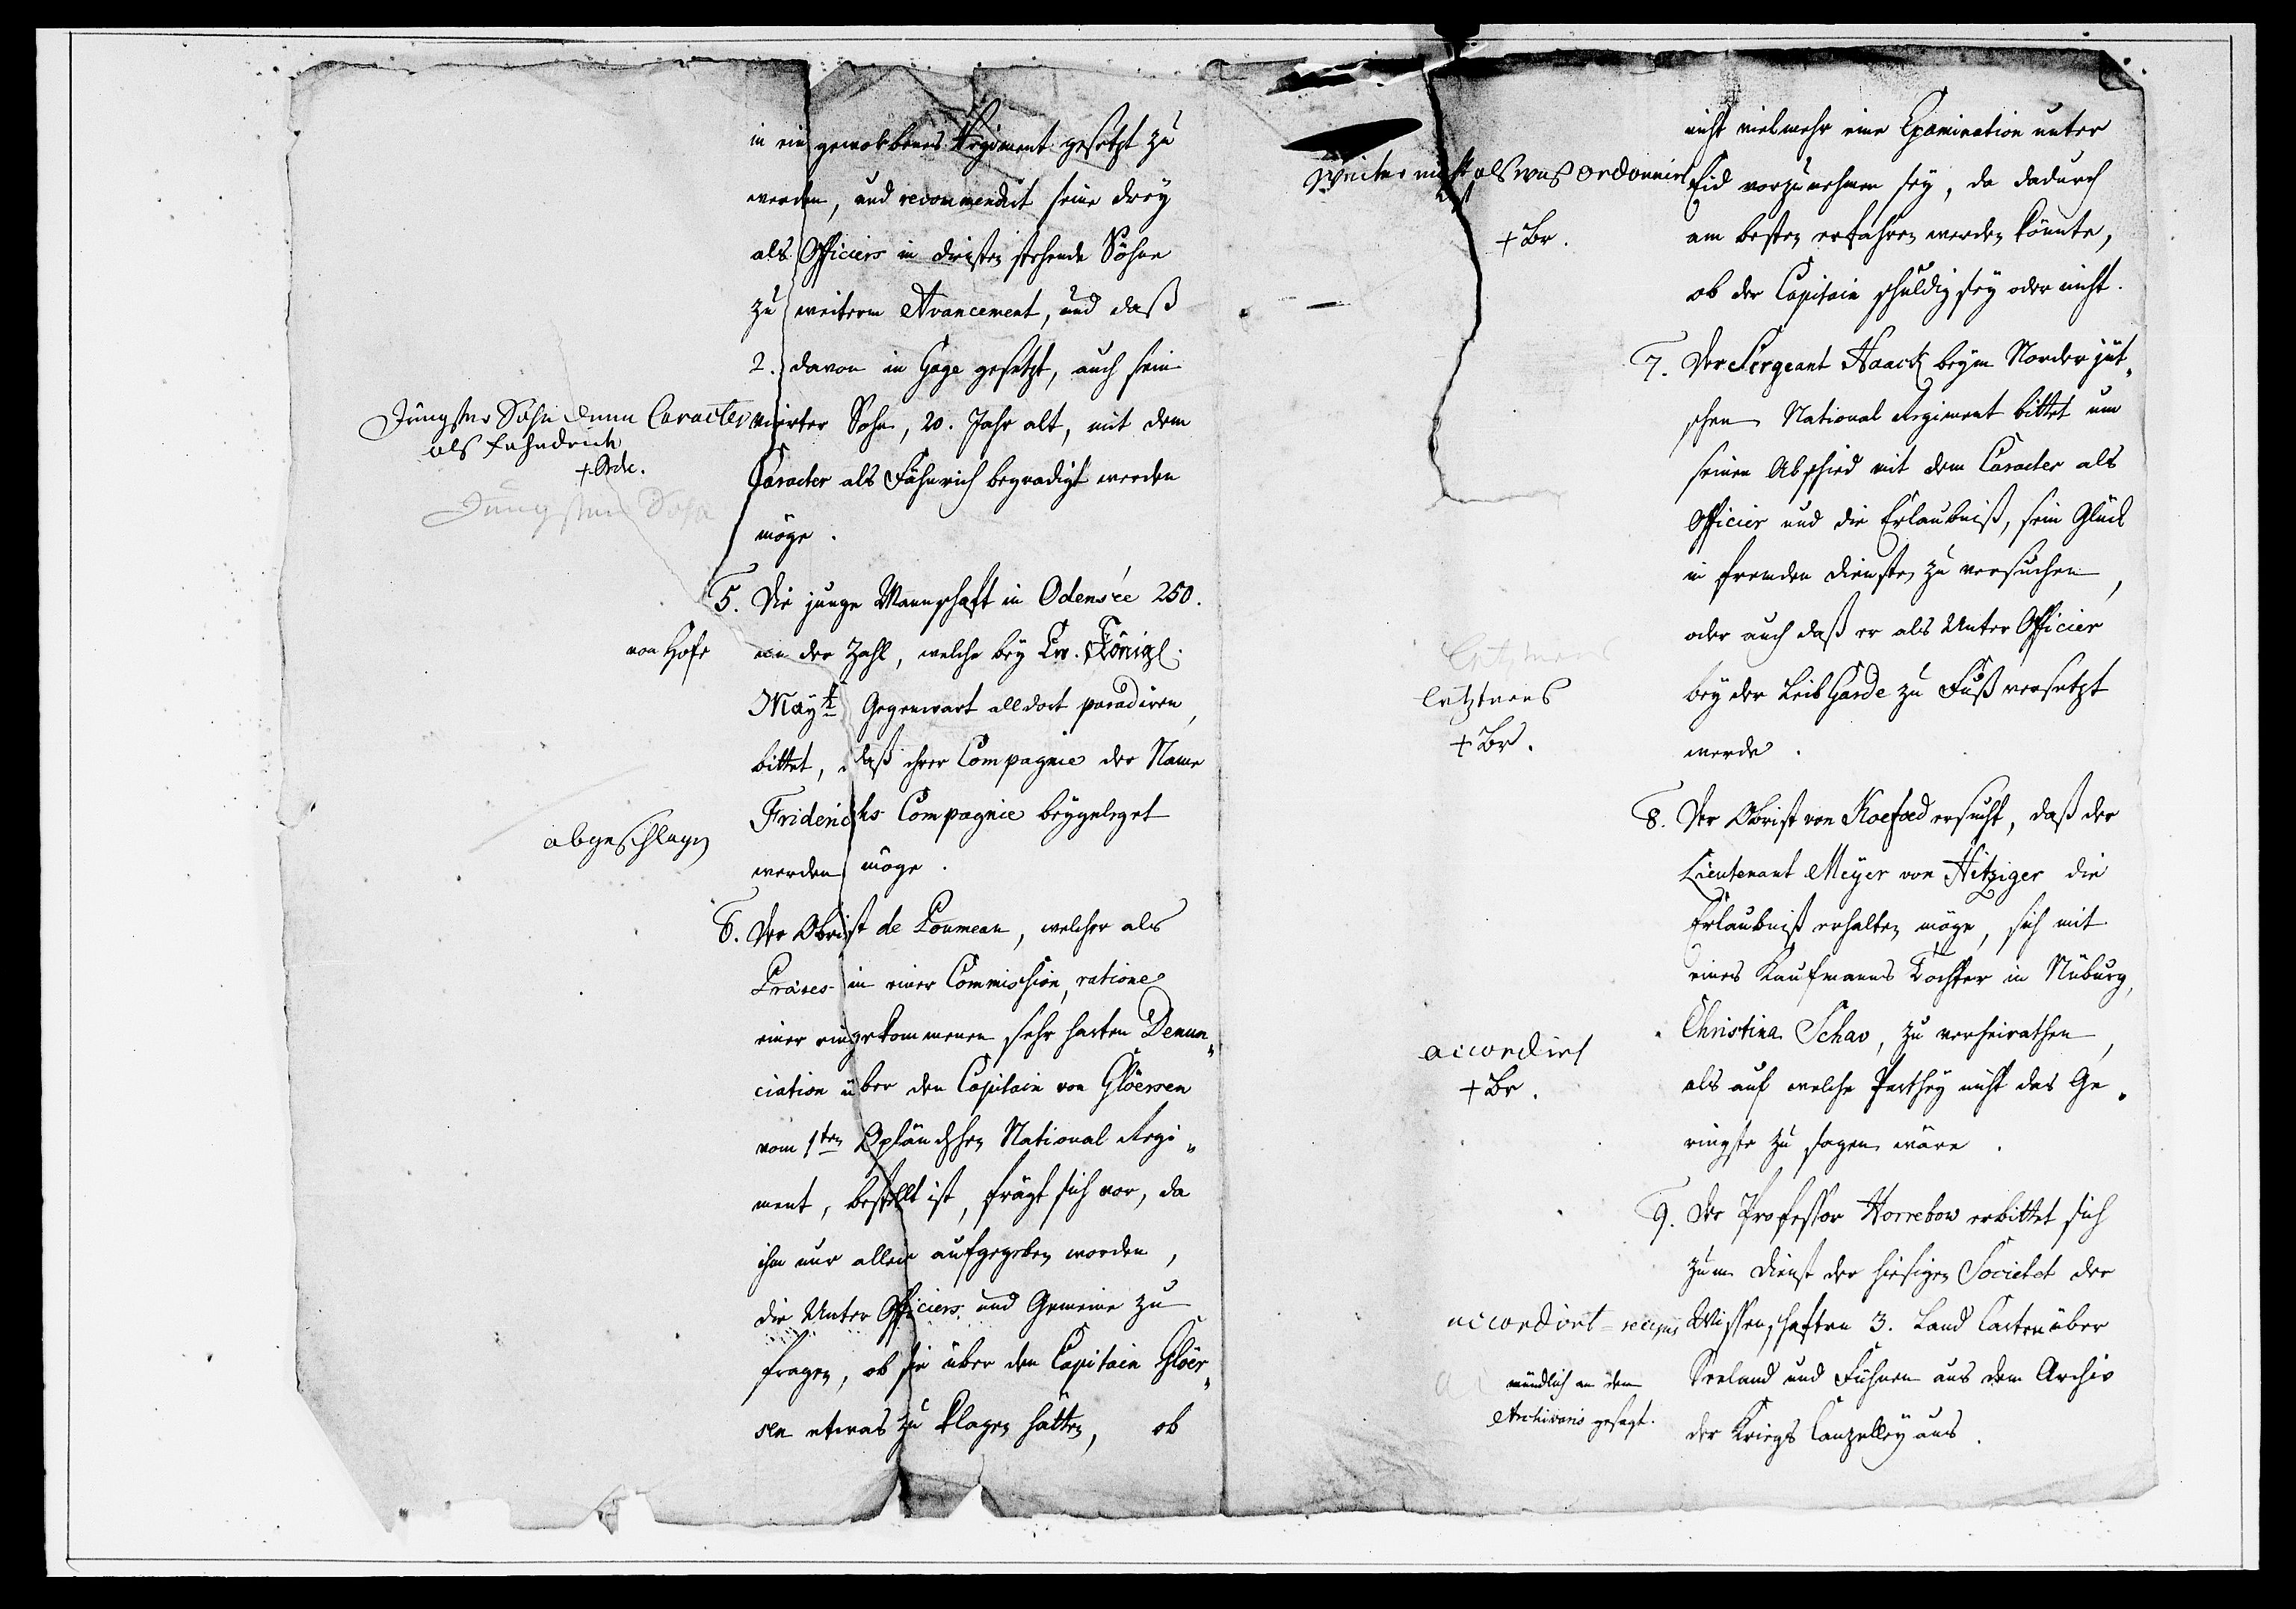 in ein geworbenes Regiment gesetzt zu
werden, und recommendirt seine drey
als Officiers in Dinsten stehende Söhne
zu weiterm Avancement, und daß
2. davon in Gage gesetzt, auch sein
vierter Sohn, 20. Jahr alt, mit dem
Caracter als Fähnrich begnadigt werden
möge.
Jüngster Sohn denn Caracter
als fehndrich
Jüngsten Sohn
5. Die junge Mannschaft in Odensée 250.
an der Zahl, welche bey Ew. Königl.
Mayt Gegenwart alldort paradiren,
bittet, daß ihrer Compagnie der Name
Friderichs Compagnie beygeleget
werden möge.
von Hofe
abgeschlagen
6. Der Obrist de Poumeau, welcher als
Präses in einer Commission, ratione
einer eingekommenen sehr harten Denun„
ciation über den Capitain von Glöersen
vom 1ten Opländschen National Regi„
ment, bestellt ist, frägt sich vor, da
ihm nur allein aufgegeben worden,
die Unter Officiers und Gemeine zu
fragen, ob sie über den Capitain Glöer„
sen etwas zu klagen hätten, ob
nicht vielmehr eine Examination unter
Eid vorzunehmen sey, da dadurch
am besten erfahren werden könnte,
ob der Capitain schuldig sey oder nicht.
Weiter nicht als was ordonnirt
ist
+ Br.
7. Der Sergeant Haack beym Norder jüt„
schen National Regiment bittet um
seinen Abschied mit dem Caracter als
Officier und die Erlaubniß, sein Glück
in fremden Diensten zu versuchen,
oder auch daß er als Unter Officier
bey der Leib Garde zu Fuß versetzt
werde.
letzteres
+ Br.
8. Der Obrist von Koefoed ersucht, daß der
Lieutenant Meyer von Hitziger die
Erlaubniß erhalten möge, sich mit
eines Kaufmanns Tochter in Nüburg,
Christina Schav, zu verheirathen,
als auf welche Parthey nicht das Ge„
ringste zu sagen wäre.
accordirt
+ Br.
9. Der Professor Horrebow erbittet sich
zum Dienst der hiesigen Societet der
Wissenschaften 3. Land Carten über
Seeland und Fühnen aus dem Archiv
der Kriegs Canzelley aus.
accordirt
mündlich an dem
Archivario gesagt.